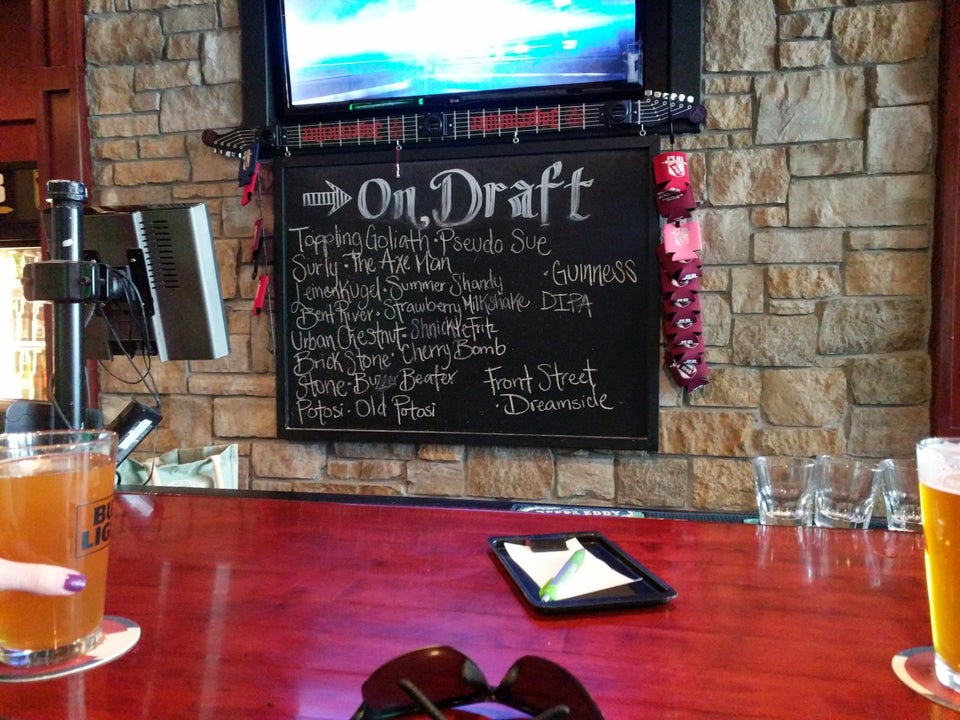 LG
On, Draft
Toppling Goliath · Pseudo Sue
Surly · The Axe Man
Leinenkugel · Summer Shandy
Bent River · Strawberry Milkshake DIPA
Urban Chestnut · Shnickelfritz
Brick Stone · Cherry Bomb
Stone · Buzzer Beater
Potosi · Old Potosi
· Guinness
Front Street
· Dreamside
BU
LIG